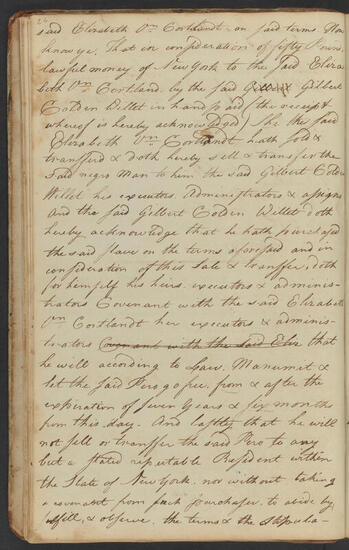 said Elizabeth Vn Cortlandt on said terms Now
know ye. That in consideration of fifty Pounds
lawful money of New York to the said Eliza
beth Vn Cortland by the said Gilbert
Colden Willet in hand paid (the receipt
whereof is hereby acknowledged) She the said
Elizabeth Vn Cortlandt hath sold &
transferd & doth hereby sell & transfer the
said negro Man to him the said Gilbert Colden
Willet his executors. Administrators & assigns
And the said Gilbert Colden Willet doth
hereby acknowledge that he hath purchased
the said slave on the terms aforesaid and in
consideration of this Sale & transfer, doth
for himself his heirs. executors & adminis-
trators Covenant with the said Elizabeth
Vn Cortlandt her executors & adminis-
trators Covenant with the said Eliz that
he will according to Law. Manumit &
let the said Pero go free. from & after the
expiration of seven Years & six months
from this day. And lastly that he will
not sell or transfer the said Pero to any
but a stated reputable Resident within
the State of New York. nor without taking
a covenant from such purchaser. to abide by
fulfill, & observe, the terms & the stipula-